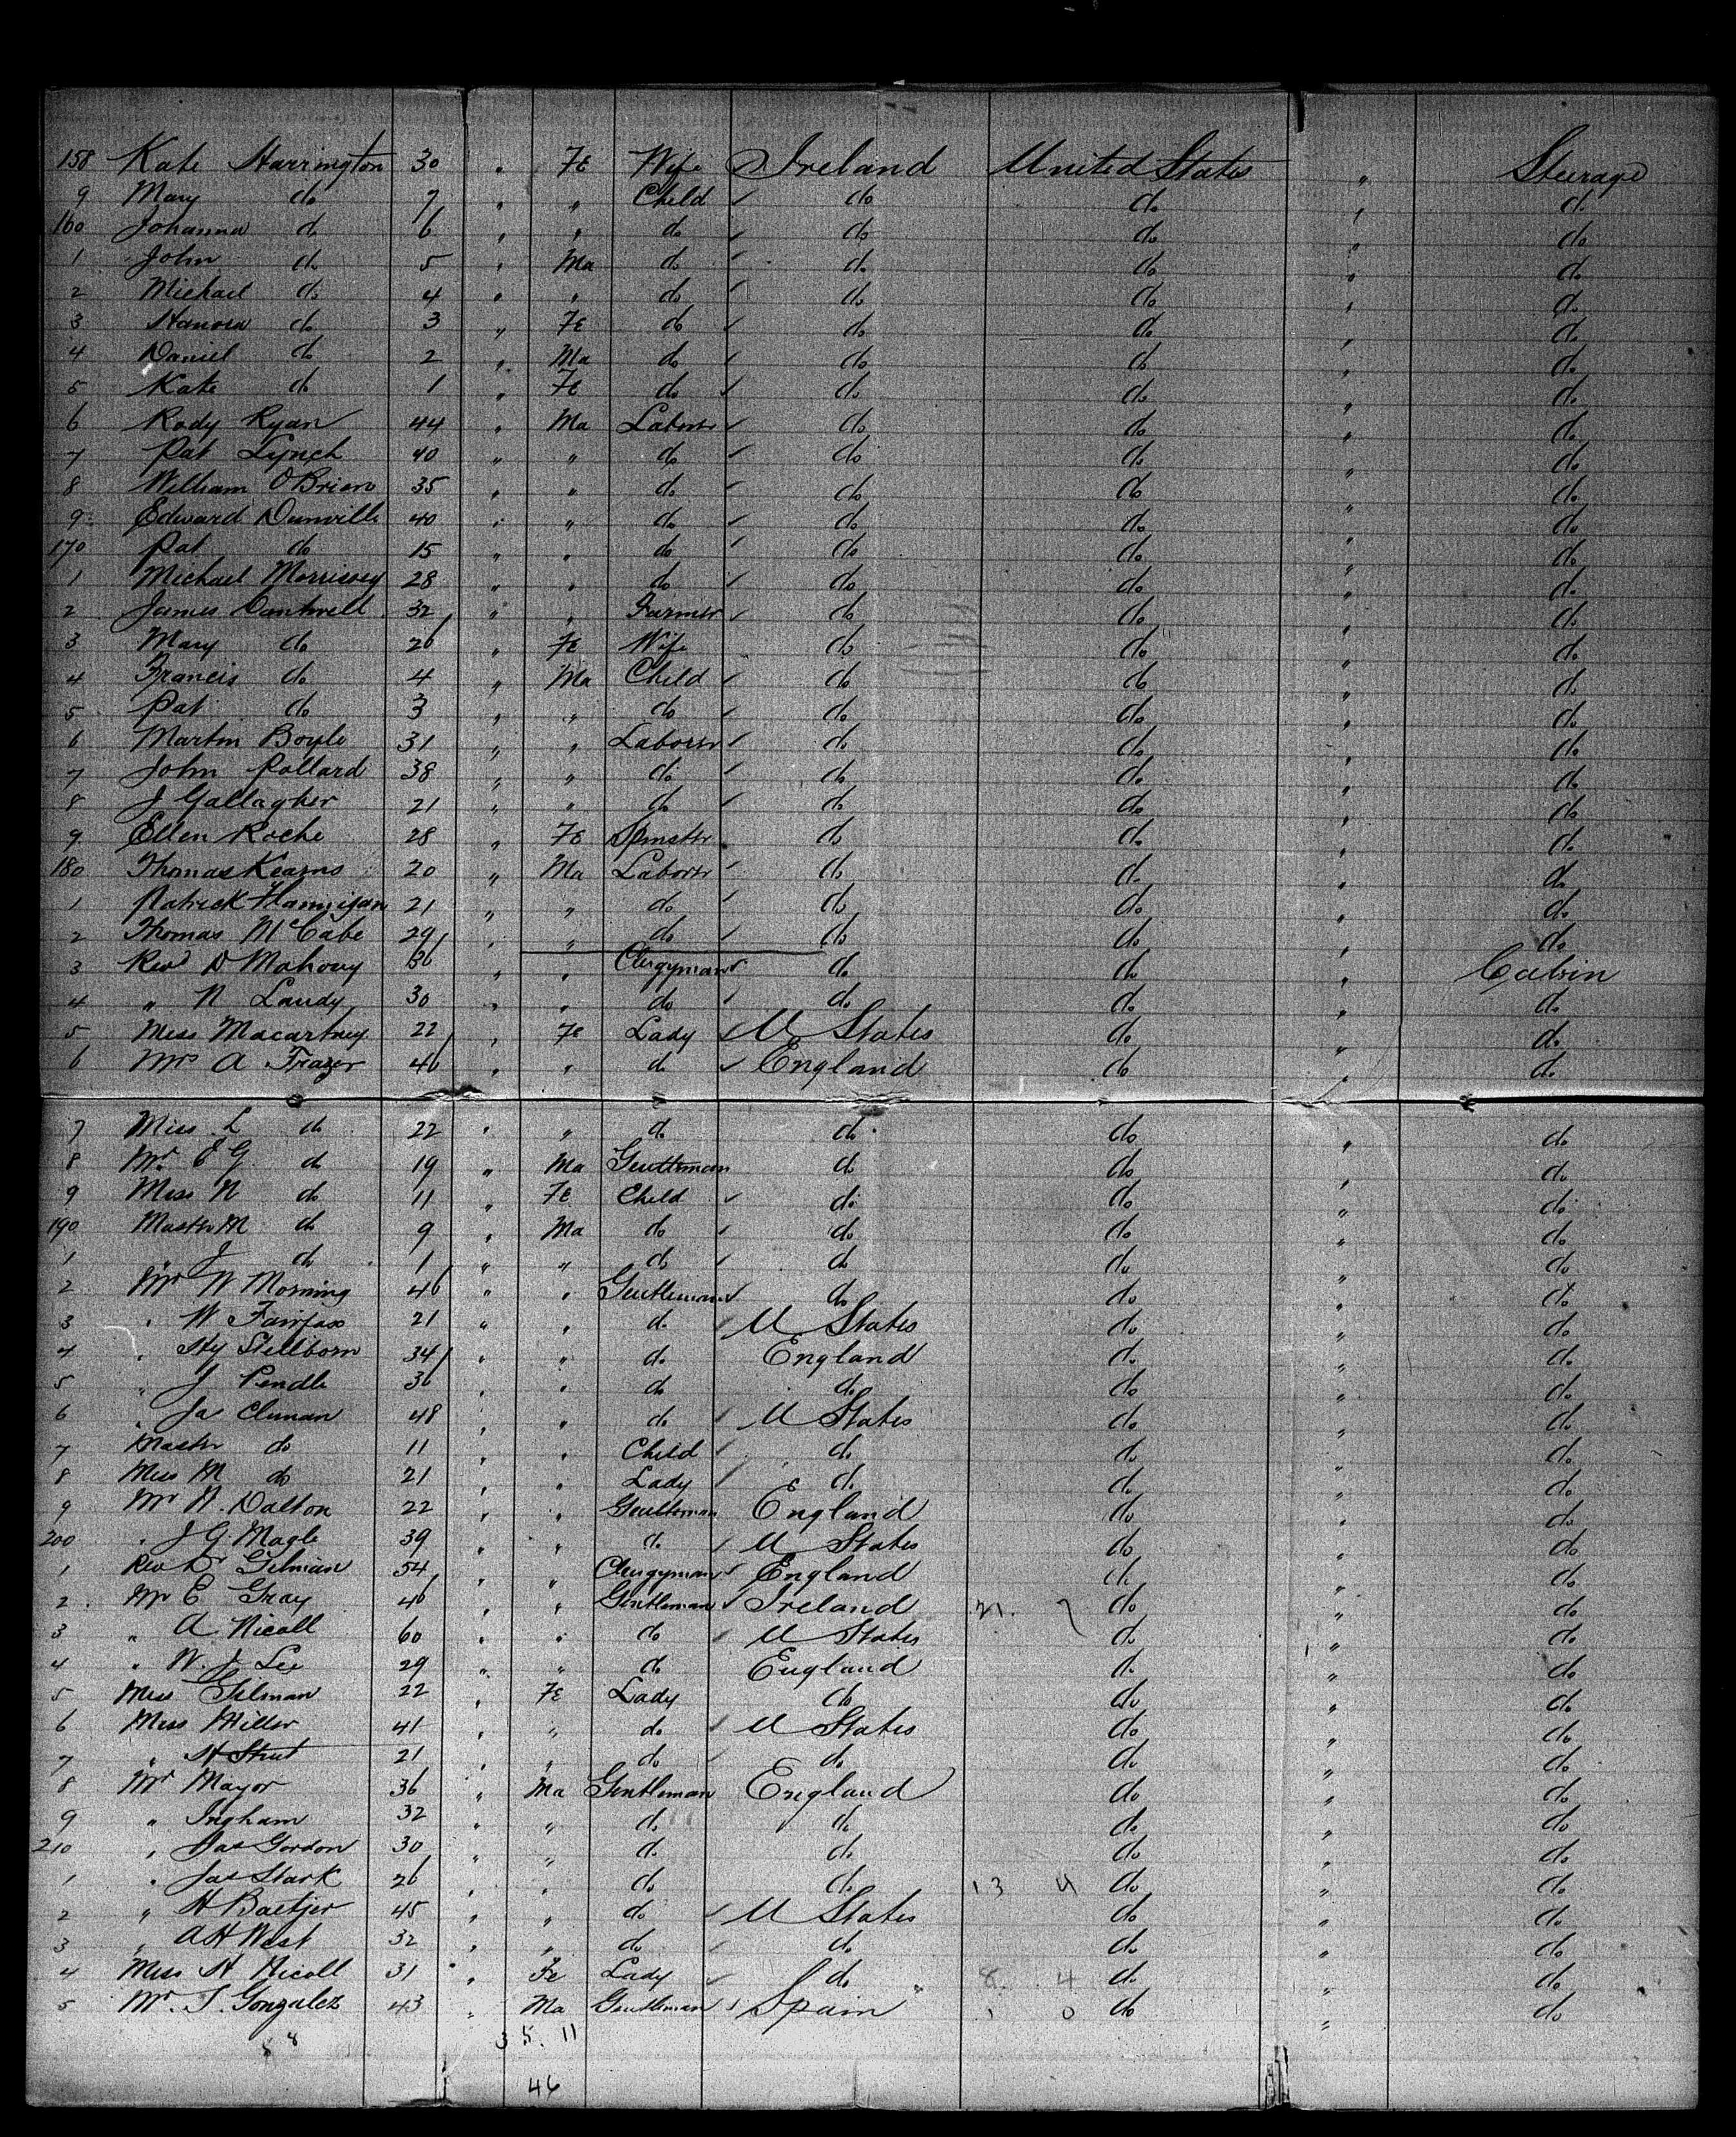 158 Kate Harrington 30 " Fe Wife Ireland United States " Steerage
9 Mary do 7 " " Child do do " do
160 Johanna do 6 " " do do do " do
1 John do 5 " Ma do do do " do
2 Michael do 4 " " do do do " do
3 Hanora do 3 " Fe do do do " do
4 Daniel do 2 " Ma do do do " do
5 Kate do 1 " Fe do do do " do
6 Rody Ryan 44 " Ma Laborer do do " do
7 Pat Lynch 40 " " do do do " do
8 William O'Brien 35 " " do do do " do
9 Edward Dunville 40 " " do do do " do
170 Pat do 15 " " do do do " do
1 Michael Morrissey 28 " " do do do " do
2 James Cantwell 32 " " Farmer do do " do
3 Mary do 26 " Fe Wife do do " do
4 Francis do 4 " Ma Child do do " do
5 Pat do 3 " " do do do " do
6 Martin Boyle 31 " " Laborer do do " do
7 John Pollard 38 " " do do do " do
8 J Gallagher 21 " " do do do " do
9 Ellen Roche 28 " Fe Spinster do do " do
180 Thomas Kearns 20 " Ma Laborer do do " do
1 Patrick Flannigan 21 " " do do do " do
2 Thomas McCabe 29 " " do do do " do
3 Revd D Mahony 36 " " Clergyman do do " Cabin
4 " N Landy 30 " " do do do " do
5 Miss Macartney 22 " Fe Lady U States do " do
6 Mrs A Frazer 46 " " do England do " do
7 Miss L do 22 " " do do do " do
8 Mr E G do 19 " Ma Gentleman do do " do
9 Miss N do 11 " Fe Child do do " do
190 Master M do 9 " Ma do do do " do
1 " J do 1 " " do do do " do
2 Mr W Morning 46 " " Gentleman do do " do
3 " W Fairfax 21 " " do U States do " do
4 " Hy Stellborn 34 " " do England do " do
5 " J Pendle 36 " " do do do " do
6 " Ja Cluman 48 " " do U States do " do
7 Master do 11 " " Child do do " do
8 Miss M do 21 " " Lady do do " do
9 Mr N. Dalton 22 " " Gentleman England do " do
200 " J G. Magle 39 " " do U States do " do
1 Rev Dr Gilman 54 " " Clergyman England do " do
2 Mr E Gray 46 " " Gentleman Ireland 21. 7 do " do
3 " A. Nicoll 60 " " do U States do " do
4 " W. J. Lee 29 " " do England do " do
5 Miss Gilman 22 " Fe Lady do do " do
6 Miss Miller 41 " " do U States do " do
7 " H Strut 21 " " do do do " do
8 Mr Mayor 36 " Ma Gentleman England do " do
9 " Ingham 32 " " do do do " do
210 " Jas Gordon 30 " " do do do " do
1 " Jas Stark 26 " " do do 13 4 do " do
2 " H Baetjer 45 " " do U States do " do
3 " A H West 32 " " do do do " do
4 Miss H Nicoll 31 " Fe Lady do 8 4 do " do
5 Mr. S. Gonzalez 43 " Ma Gentleman Spain 1 0 do " do
58 35. 11
46